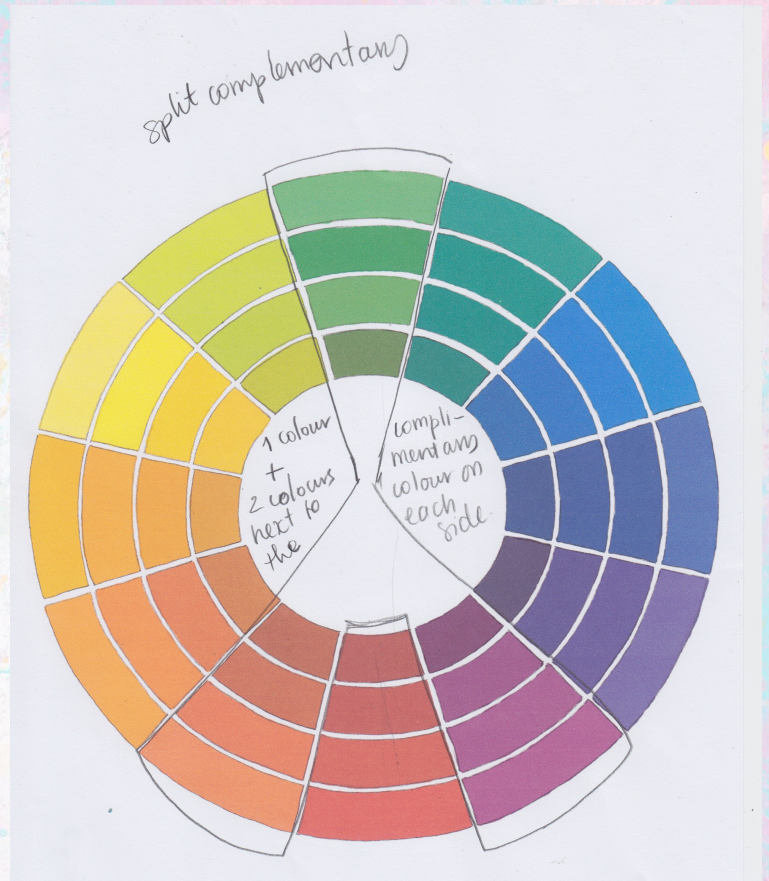 split complementary
1 colour
+
2 colours
next to
the
compli-
mentary
colour on
each
side.